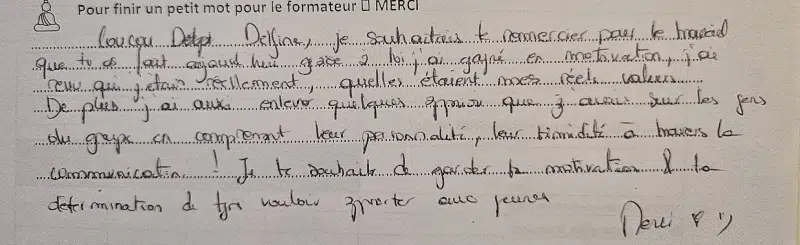 Pour finir un petit mot pour le formateur MERCI
Coucou Delfine, je souhaitais te remercier pour le travail
que tu as fait aujourd'hui grace a toi j'ai gagné en motivation, j'ai
qui j'étais réellement, quelles étaient mes réels valeurs.
De plus j'ai aussi enlever quelques que j'avais sur les gens
du groupe en comprenant leur personnalité, leur timidité à travers la
communication ! Je te souhaite de garder ta motivation & ta
détermination de tjrs vouloir apporter aux jeunes
Merci